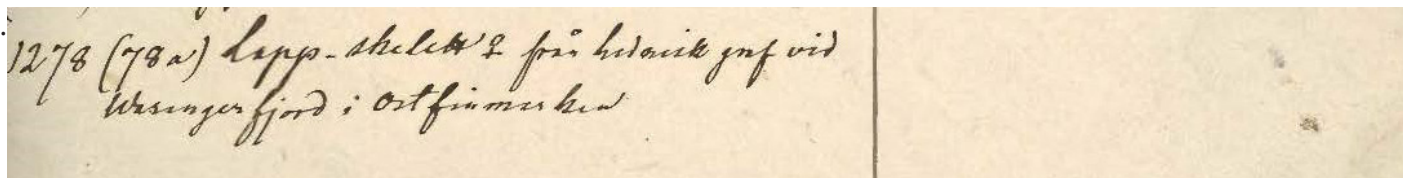 1278 (78a) Lapp-skelett ♀ från hednisk graf vid
Waranger fjord i Ostfinmarken